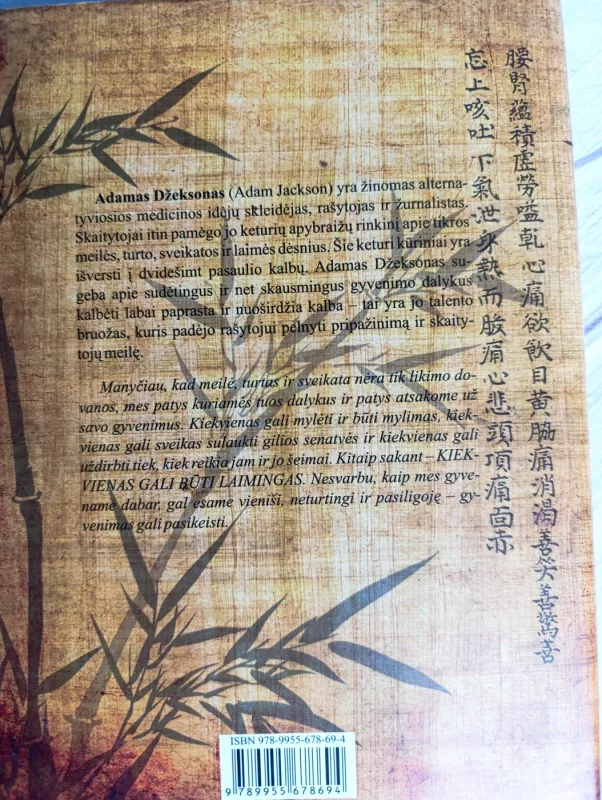 Adamas Džeksonas (Adam Jackson) yra žinomas alterna-
tyviosios medicinos idėjų skleidėjas, rašytojas ir žurnalistas.
Skaitytojai itin pamėgo jo keturių apybraižų rinkinį apie tikros
meilės, turto, sveikatos ir laimės dėsnius. Šie keturi kūriniai yra
išversti į dvidešimt pasaulio kalbų. Adamas Džeksonas su-
geba apie sudėtingus ir net skausmingus gyvenimo dalykus
kalbėti labai paprasta ir nuoširdžia kalba – tai yra jo talento
bruožas, kuris padėjo rašytojui pelnyti pripažinimą ir skaity-
tojų meilę.
Manyčiau, kad meilė, turtas ir sveikata nėra tik likimo do-
vanos, mes patys kuriamės tuos dalykus ir patys atsakome už
savo gyvenimus. Kiekvienas gali mylėti ir būti mylimas, kiek-
vienas gali sveikas sulaukti gilios senatvės ir kiekvienas gali
uždirbti tiek, kiek reikia jam ir jo šeimai. Kitaip sakant – KIEK-
VIENAS GALI BŪTI LAIMINGAS. Nesvarbu, kaip mes gyve-
name dabar, gal esame vieniši, neturtingi ir pasiligoję – gy-
venimas gali pasikeisti.
腎蘊積虛勞嗌乾心痛欲飲目黃脇痛消渴善笑善驚善
忘上咳吐下氣泄身熱而腹痛心悲頭項痛面赤
ISBN 978-9955-678-69-4
9 789955 678694